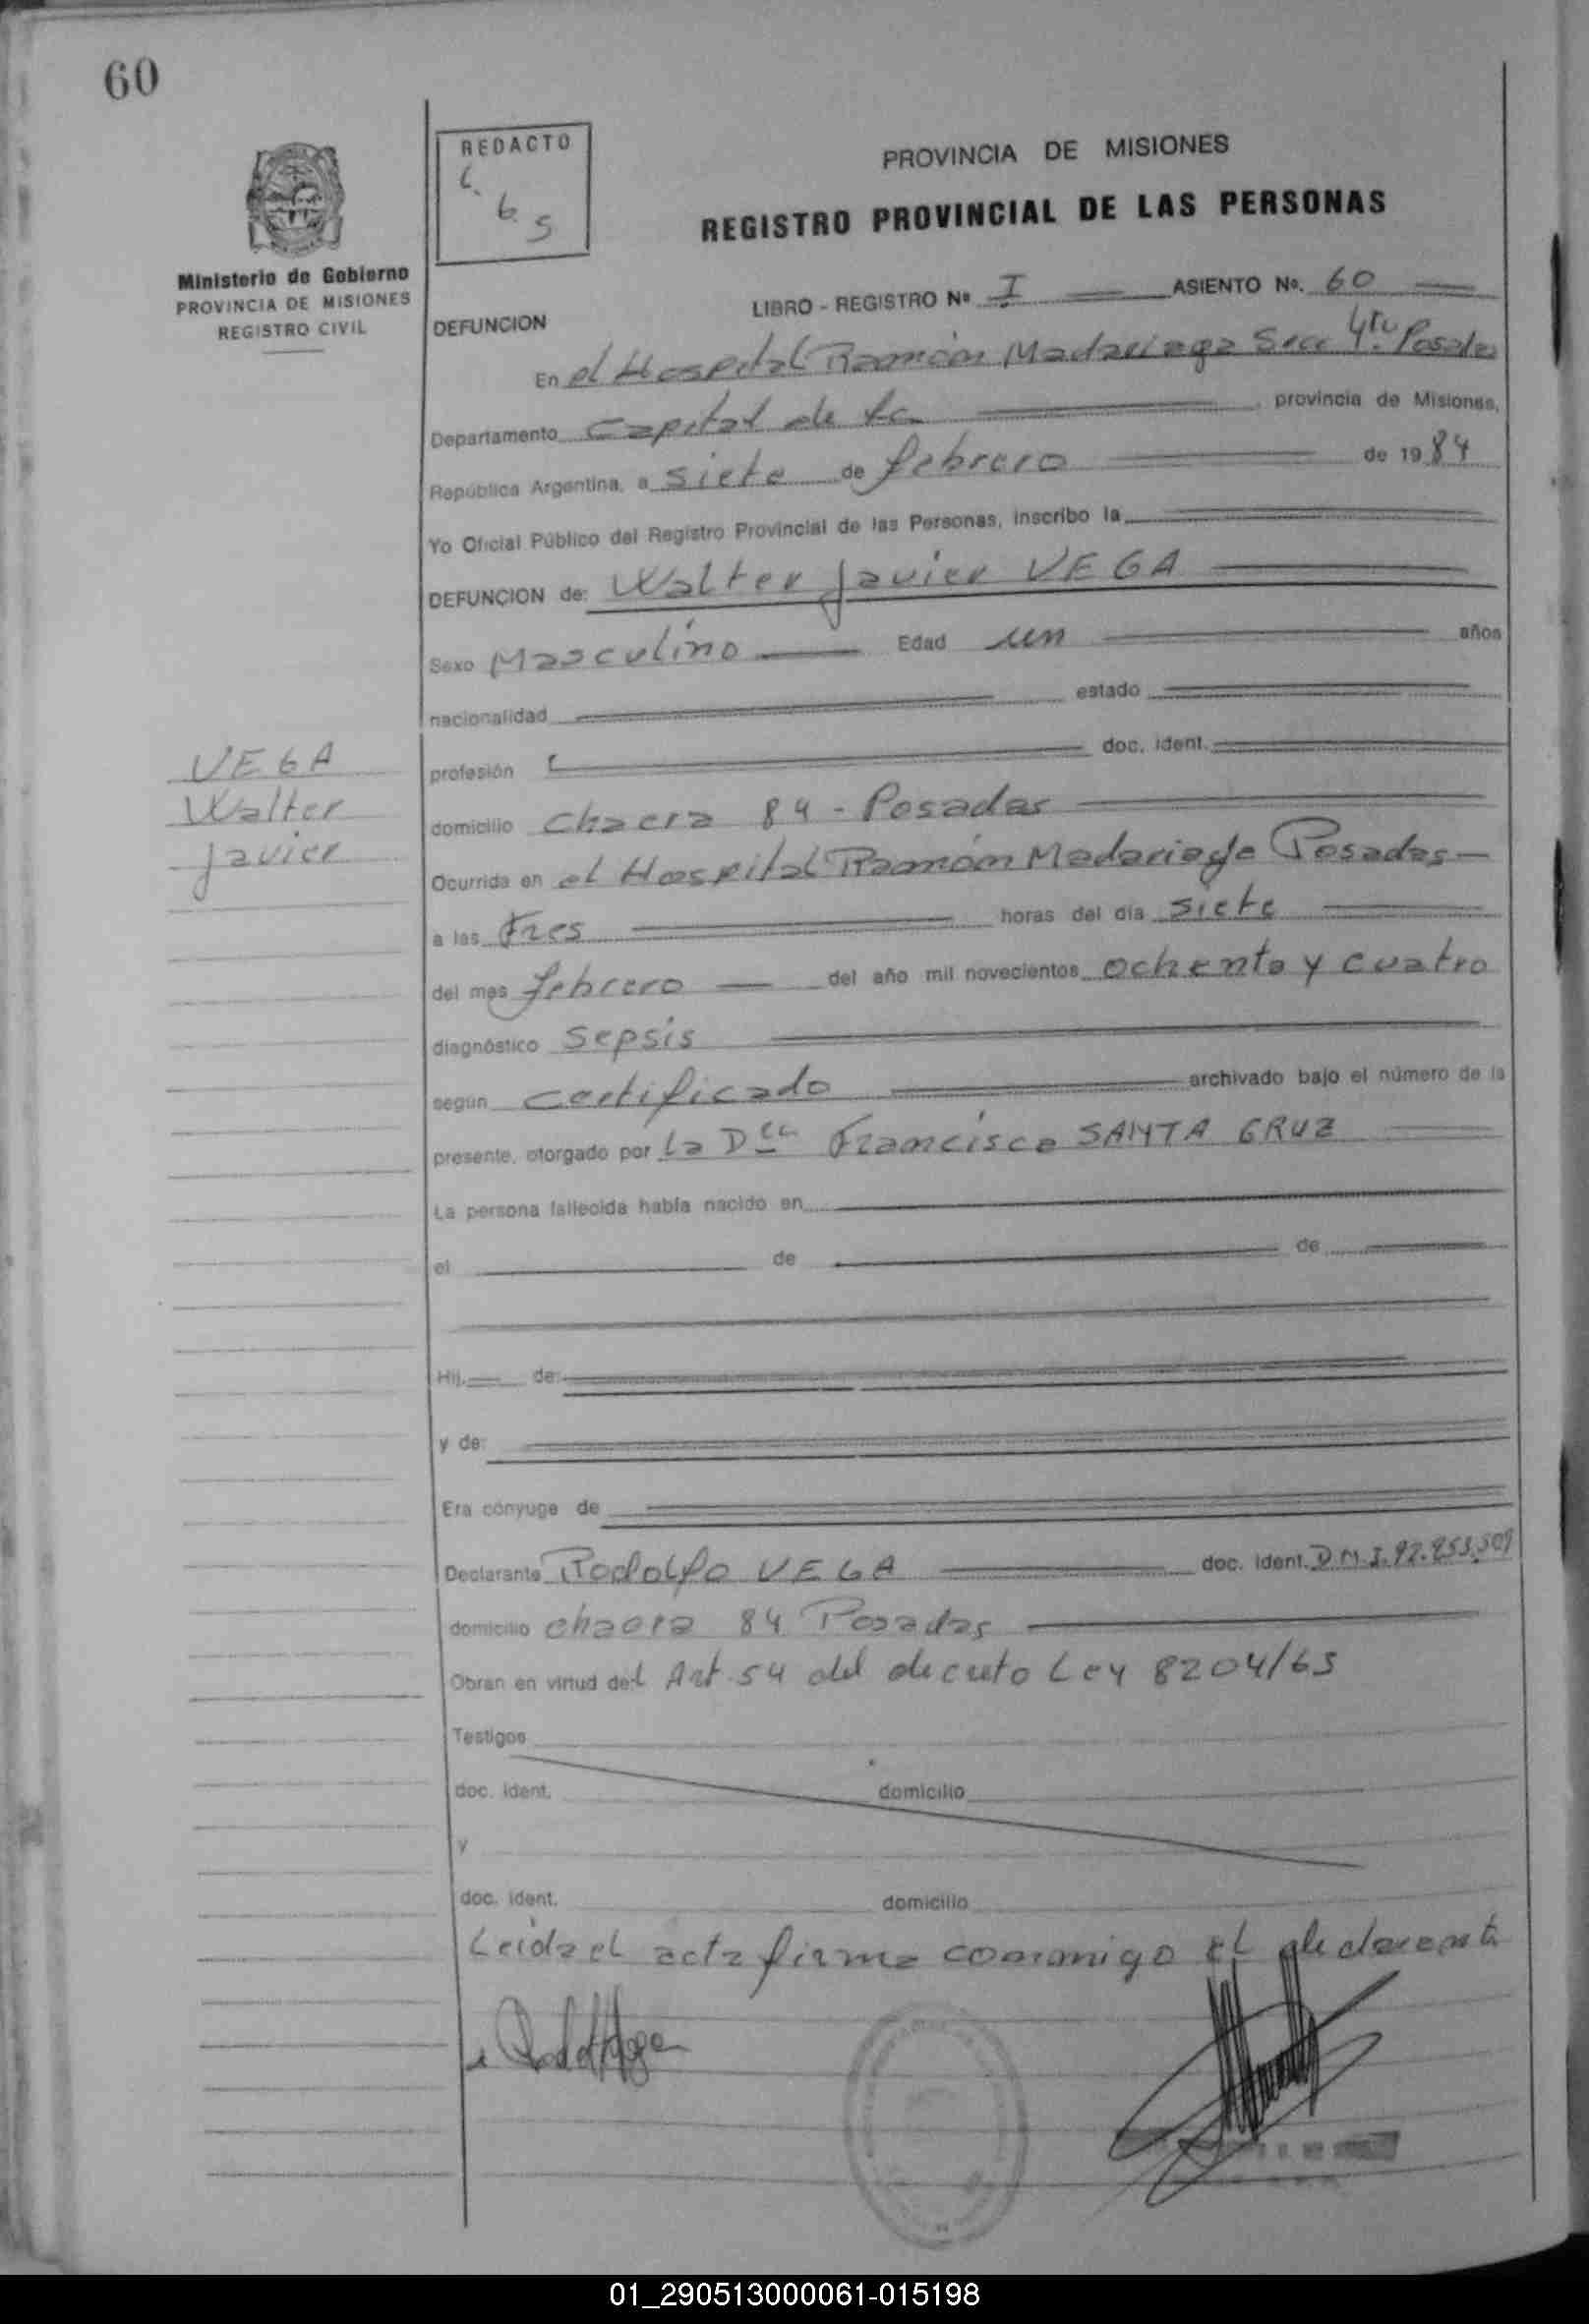 60
REDACTO
Ministerio de Gobierno
PROVINCIA DE MISIONES
REGISTRO CIVIL
PROVINCIA DE MISIONES
REGISTRO PROVINCIAL DE LAS PERSONAS
LIBRO - REGISTRO Nº I ASIENTO Nº. 60
DEFUNCION
En el Hospital Ramón Madariaga Secc 4ta. Posadas
Departamento Capital de la provincia de Misiones,
República Argentina, a siete de febrero de 1984
Yo Oficial Público del Registro Provincial de las Personas, inscribo la
DEFUNCION de: Walter Javier VEGA
Sexo Masculino Edad un años
nacionalidad estado
profesión doc. ident.
VEGA
Walter
Javier
domicilio Chacra 84 - Posadas
Ocurrida en el Hospital Ramón Madariaga Posadas
a las tres horas del día siete
del mes febrero del año mil novecientos ochenta y cuatro
diagnóstico Sepsis
según certificado archivado bajo el número de la
presente, otorgado por la Dra Francisca SANTA CRUZ
La persona fallecida había nacido en
el de de
Hij de:
y de:
Era cónyuge de
Declarante Rodolfo VEGA doc. ident. D.N.I. 92.853.509
domicilio chacra 84 Posadas
Obran en virtud del Art. 54 del decreto Ley 8204/63
Testigos
doc. ident. domicilio
y
doc. ident. domicilio
Leida el acta firma conmigo el declarante
01_290513000061-015198